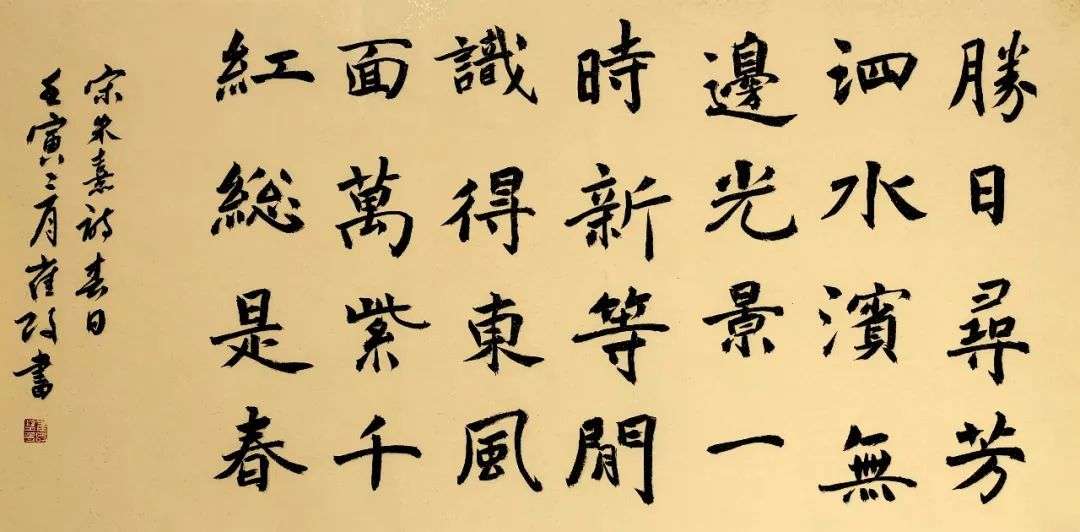 勝日尋芳
泗水濱無
邊光景一
時新等閒
識得東風
面萬紫千
紅総是春
宋朱熹詩春日
壬寅三月崔書